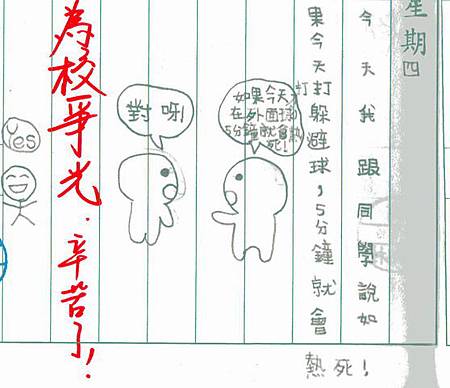 星期四
今天我跟同學說如
果今天打躲避球，5分鐘就會
熱死！
如果今天打
在外面球
5分鐘就會熱
死!
對呀!
為校爭光．辛苦了！
Yes